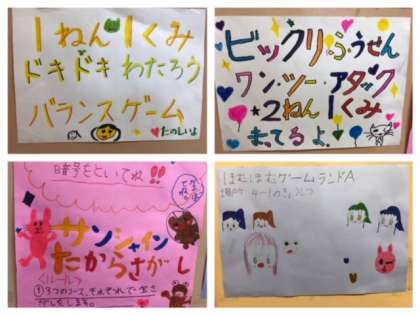 1ねん1くみ
ドキドキ わたろう
バランスゲーム
たのしいよ
ビックリふうせん
ワン・ツー・アタック
2ねん1くみ
まってるよ
暗号をといてね!!
サンシャイン
たからさがし
<ルール>
① 3つのコース、それぞれで
ほむほむゲームランドA
場所 4-1のきょうしつ